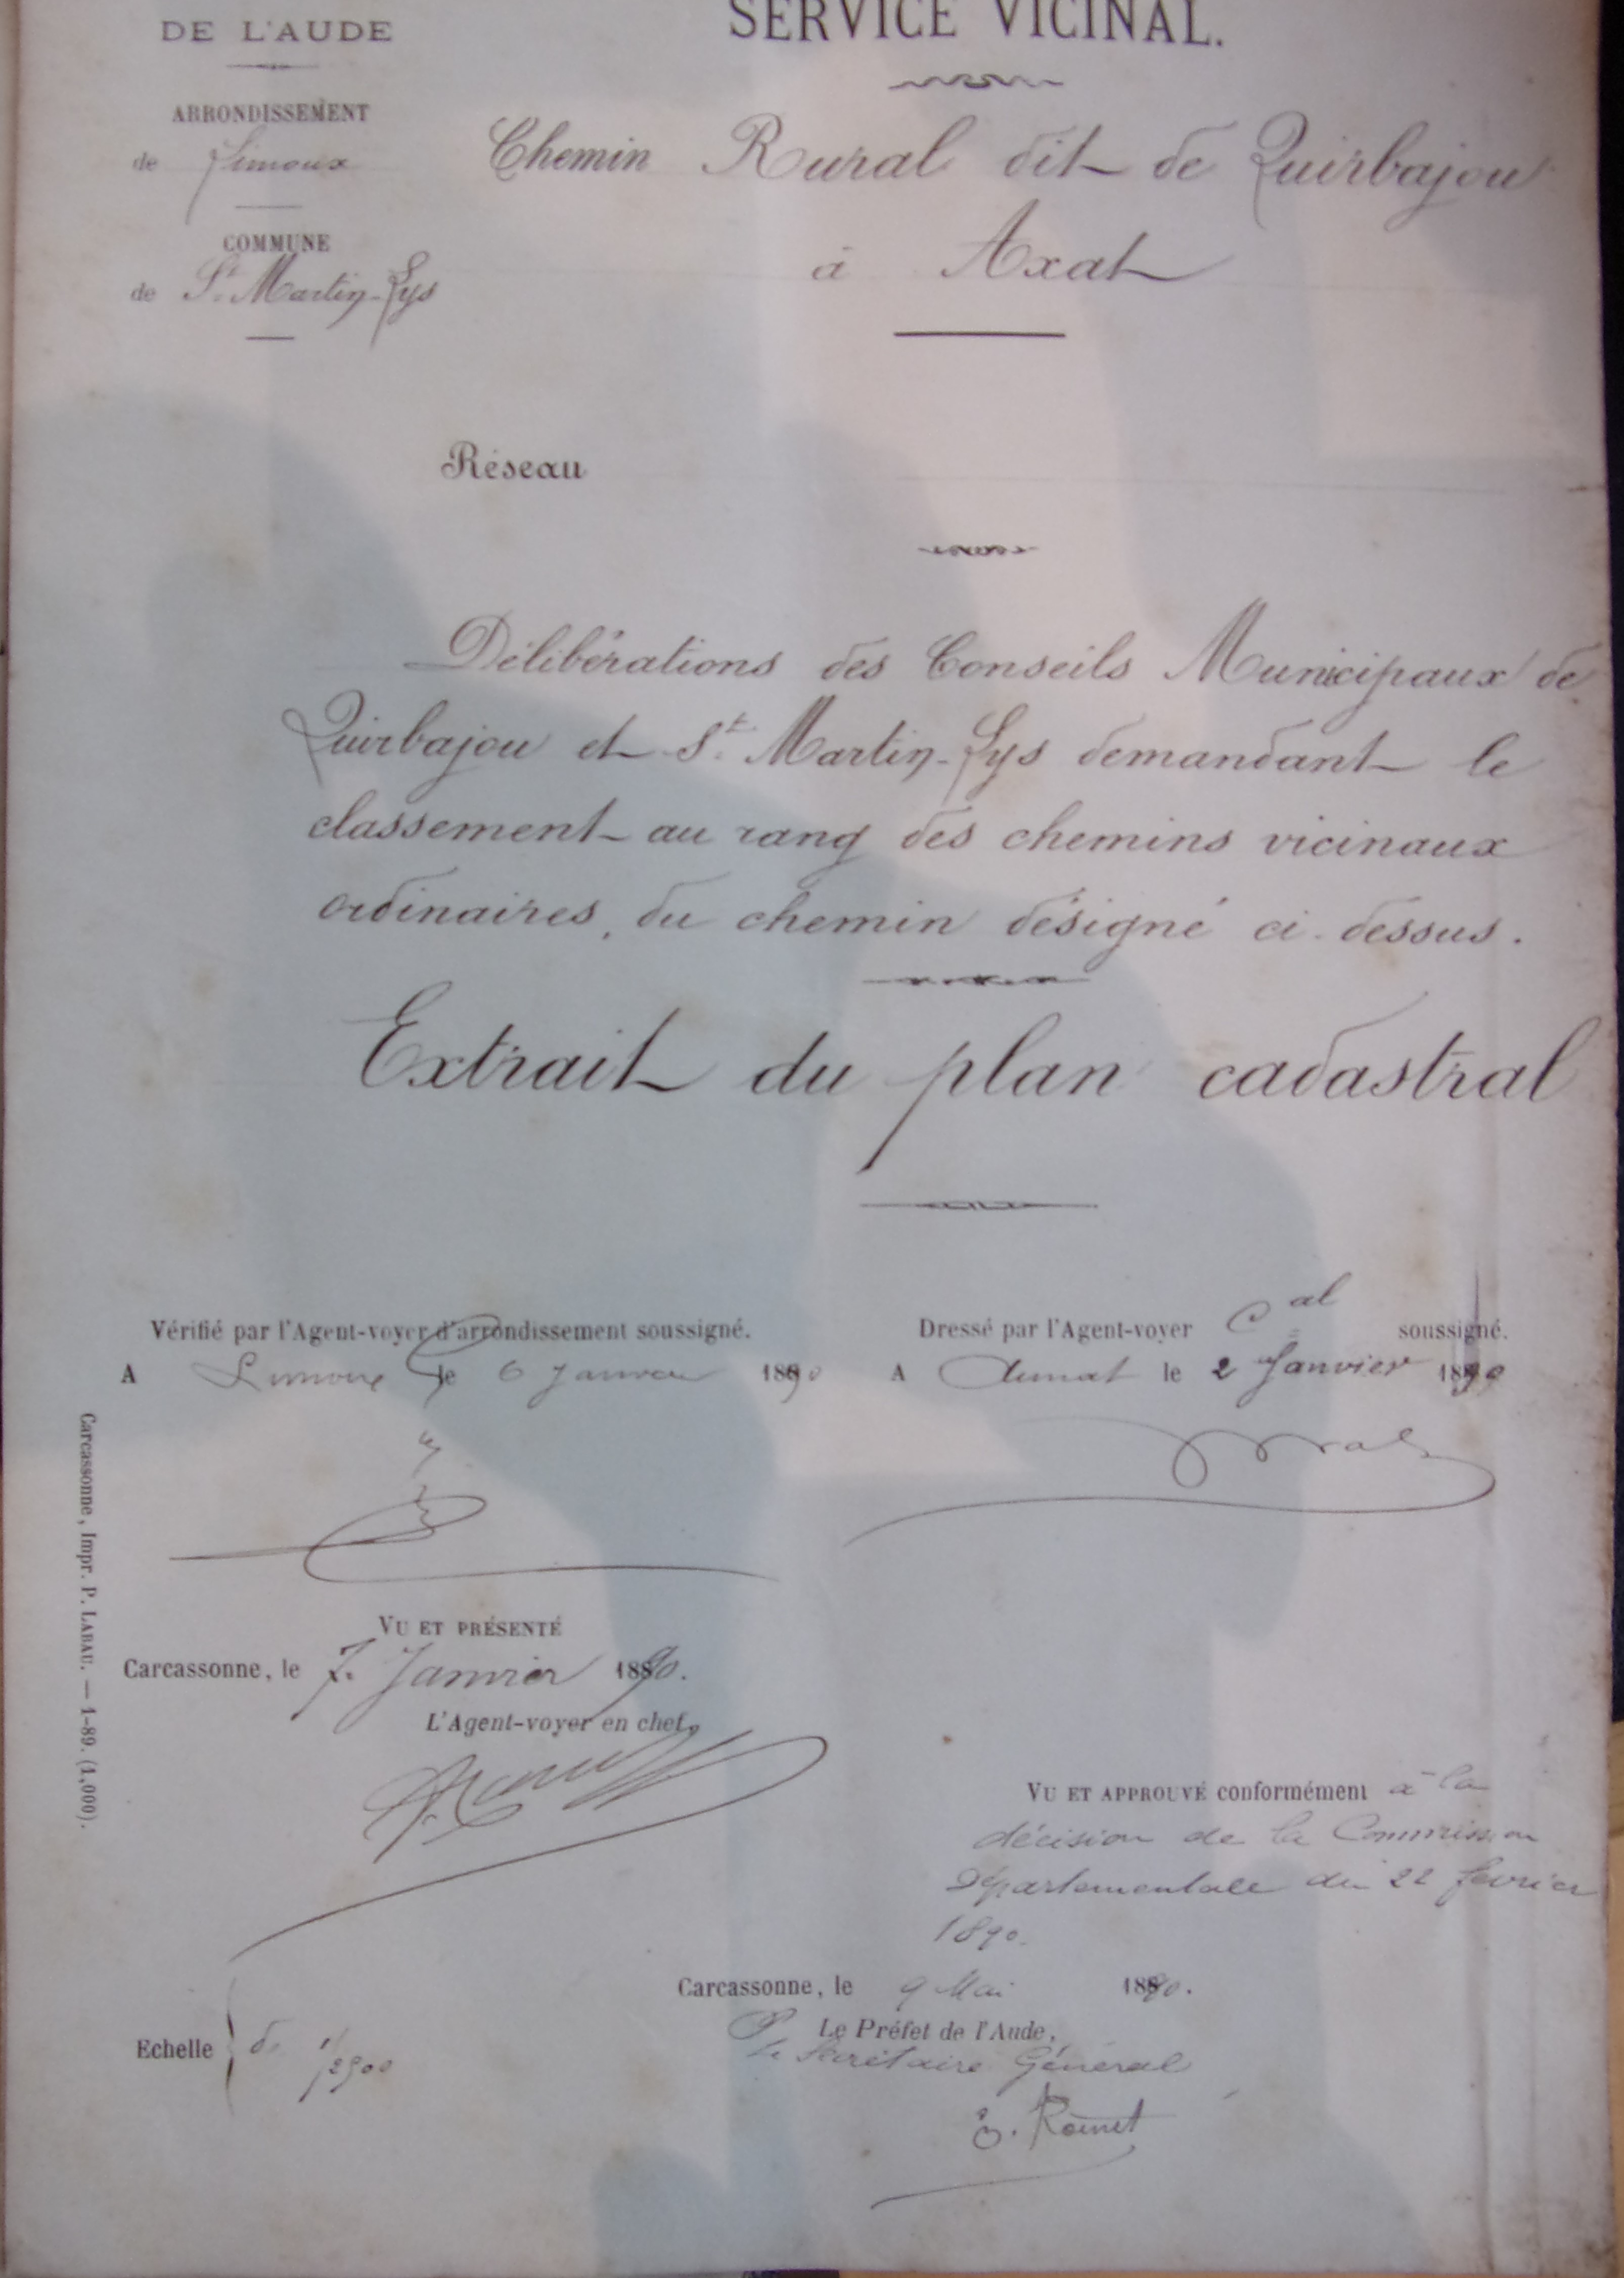 DE L'AUDE
SERVICE VICINAL.
ARRONDISSEMENT
de Limoux
COMMUNE
de St. Martin-Lys
Chemin Rural dit de Quirbajou
à Axat
Réseau
Délibérations des Conseils Municipaux de
Quirbajou et St. Martin-Lys demandant le
classement au rang des chemins vicinaux
ordinaires, du chemin désigné ci-dessus.
Extrait du plan cadastral
Vérifié par l'Agent-voyer d'arrondissement soussigné.
A Limoux le 6 Janvier 1890
Dressé par l'Agent-voyer Cal soussigné.
A le 2 Janvier 1890
VU ET PRÉSENTÉ
Carcassonne, le 7 Janvier 1890.
L'Agent-voyer en chef,
VU ET APPROUVÉ conformément à la
décision de la Commission
Départementale du 22 février
1890.
Carcassonne, le 9 Mai 1890.
P. Le Préfet de l'Aude,
Le Secrétaire Général
Echelle de 1/2500
Carcassonne, Impr. P. LABAU. — 1-89. (1,000).